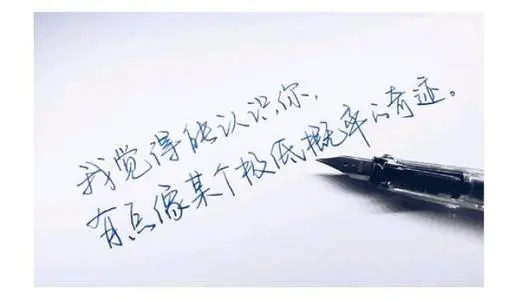 我觉得能认识你，
有点像某个极低概率的奇迹。